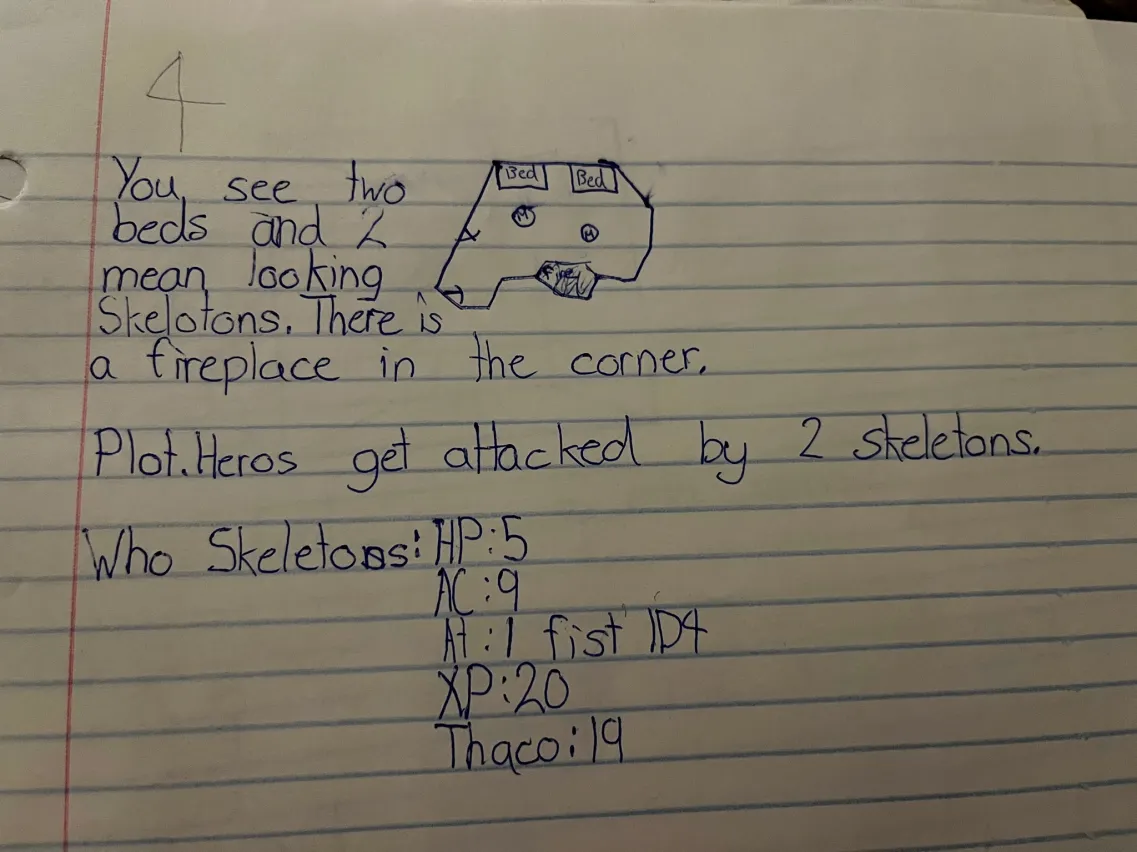 4
You see two
beds and 2
mean looking
Skelotons. There is
a fireplace in the corner.
Bed Bed
M
M
Fire
Plot. Heros get attacked by 2 skeletons.
Who Skeletons: HP:5
AC:9
At:1 fist 1D4
XP:20
Thaco:19